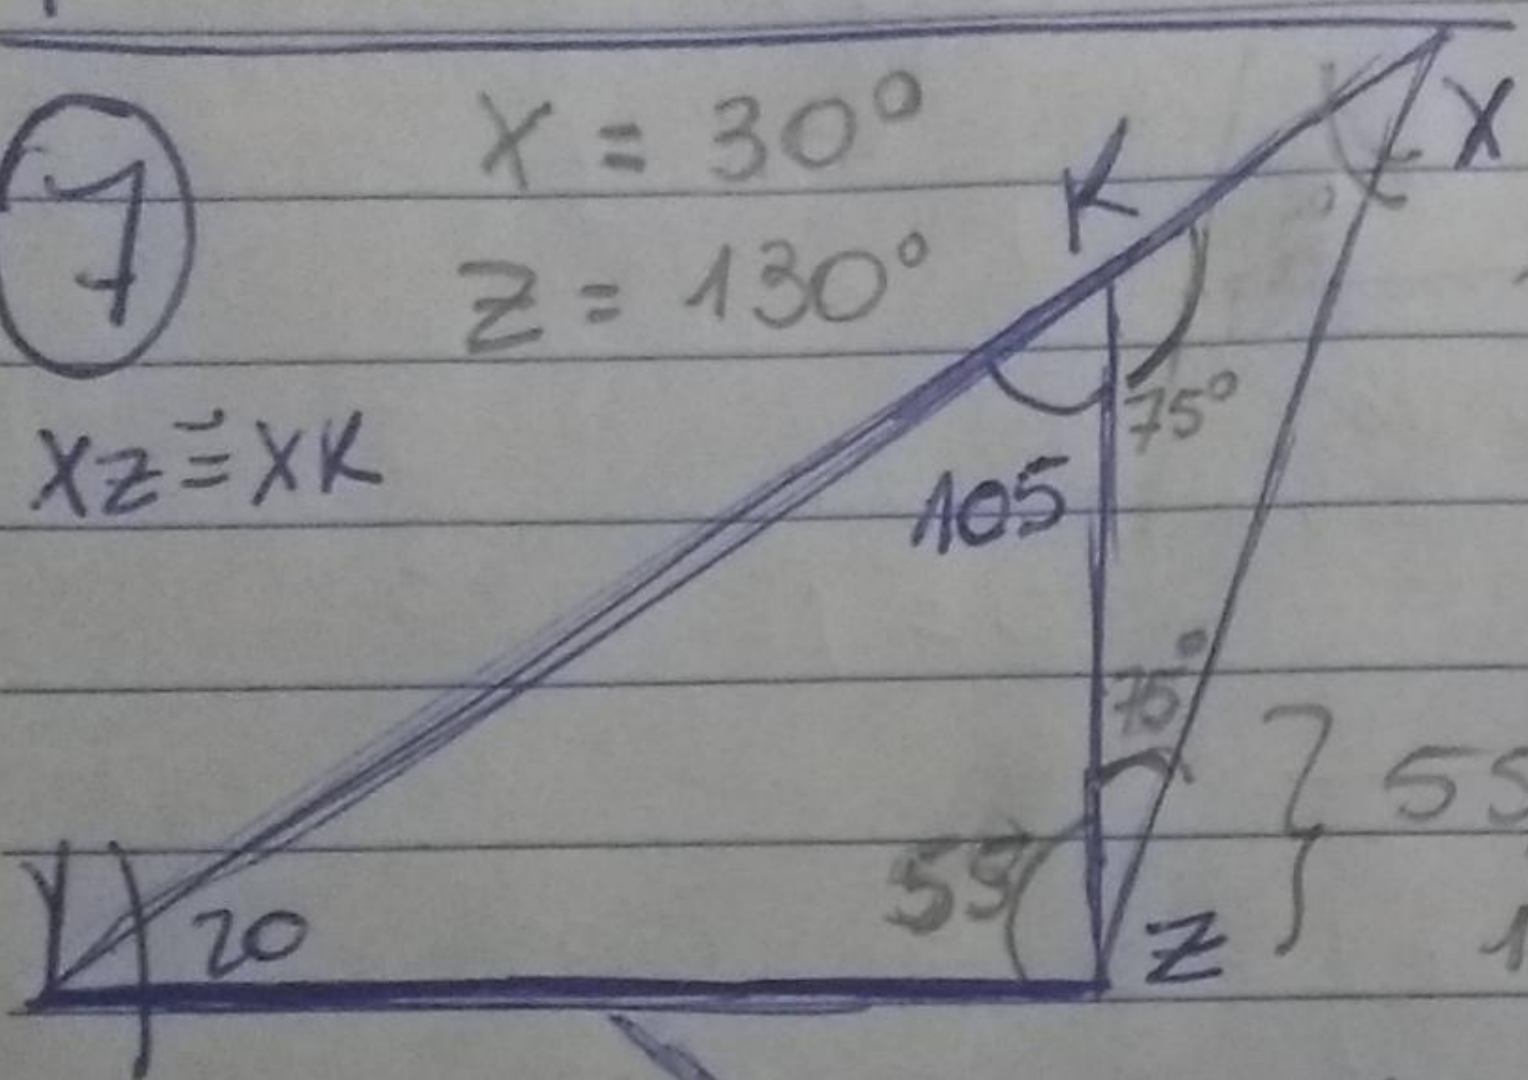 7
X = 30°
Z = 130°
XZ ≡ XK
K
X
75°
105
75°
55
55
Y
20
Z
1